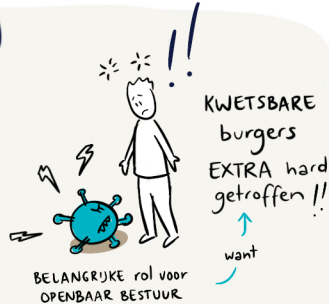 !!
KWETSBARE
burgers
EXTRA hard
getroffen !!
want
BELANGRIJKE rol voor
OPENBAAR BESTUUR